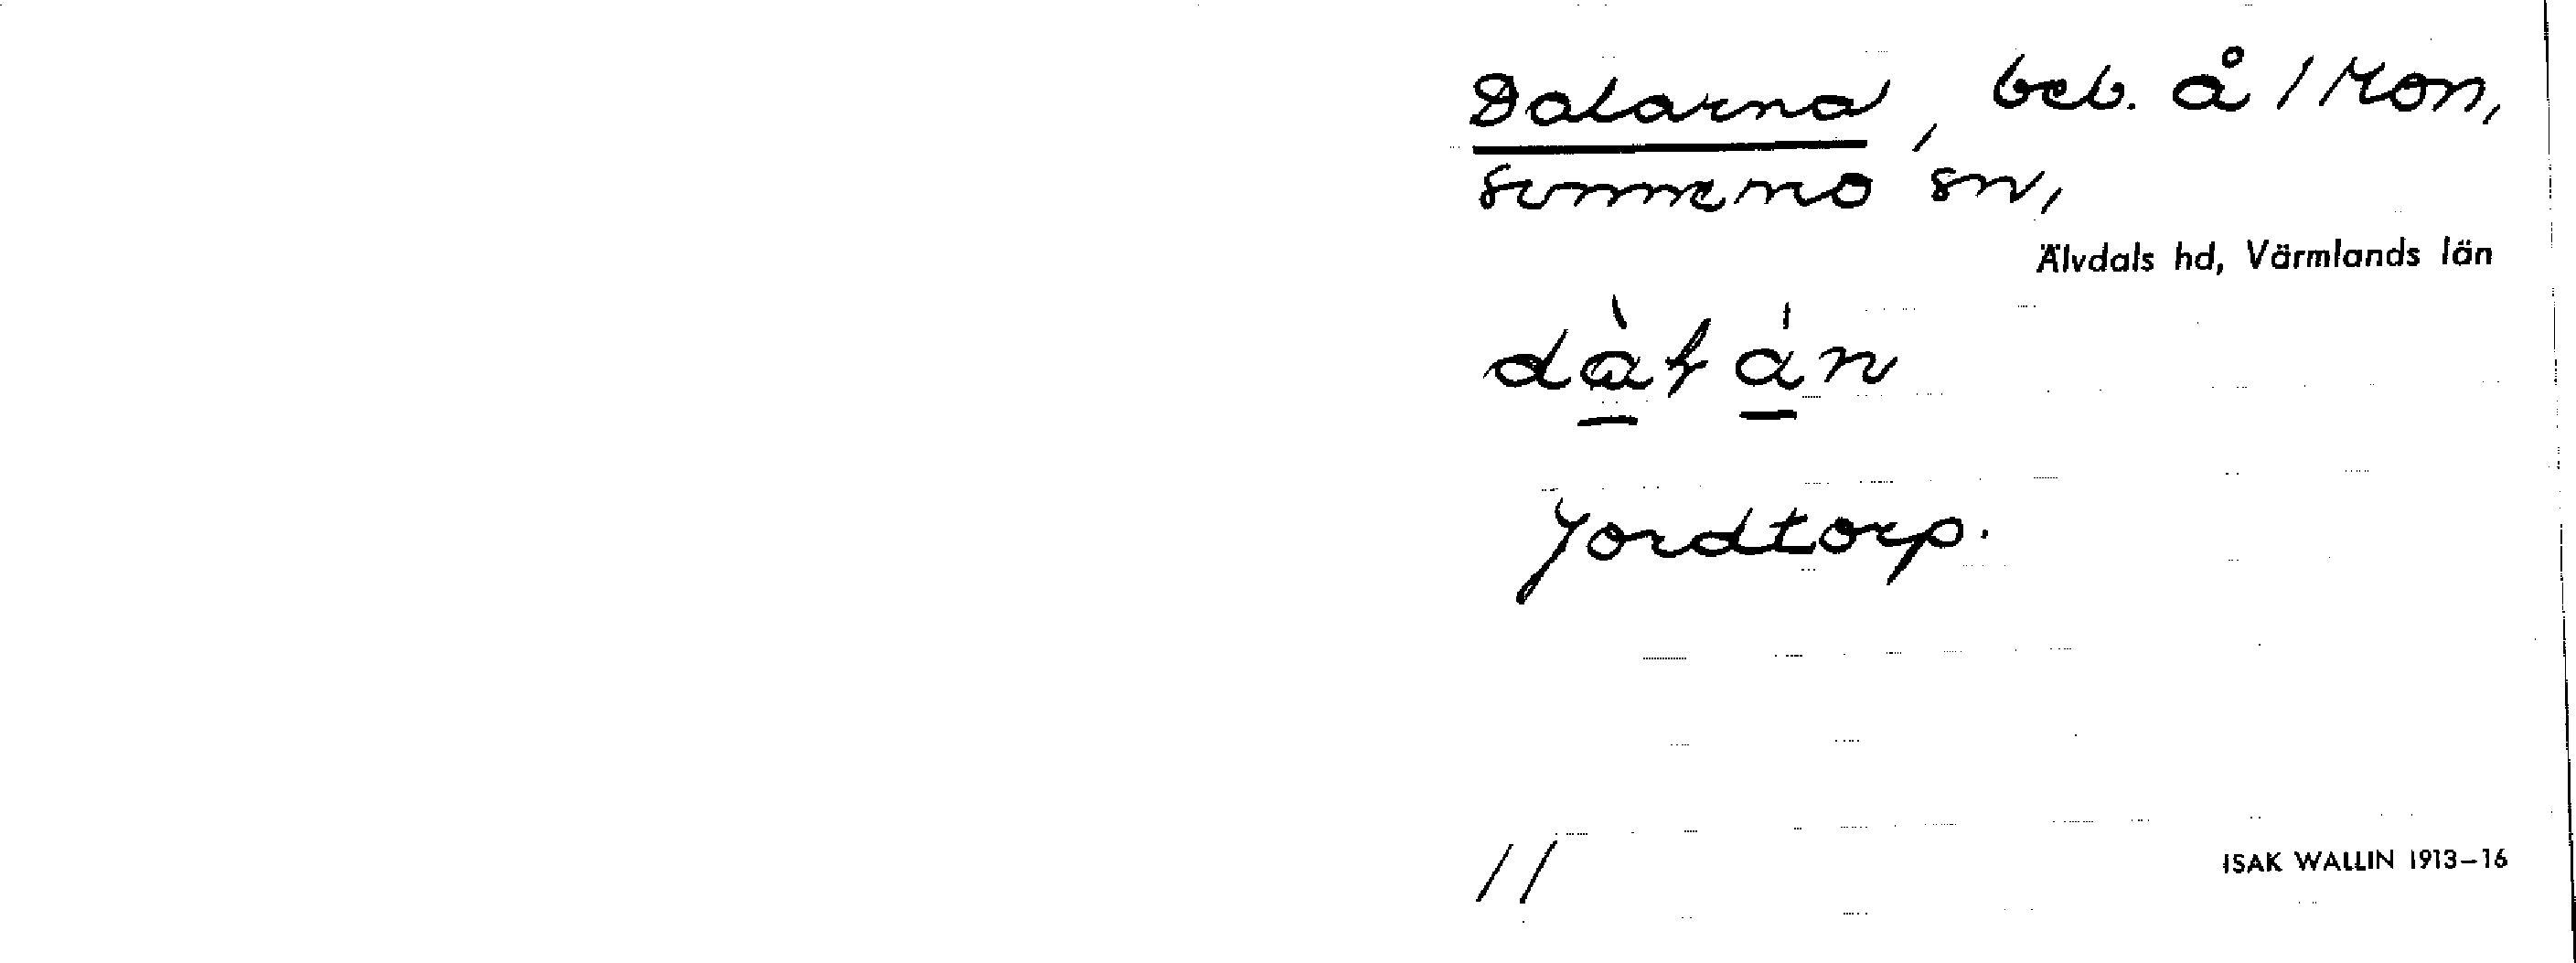 Dalarna, beb. å /Mon,
Sunnemo sn,
Älvdals hd, Värmlands län
Jordtorp.
11
ISAK WALLIN 1913–16